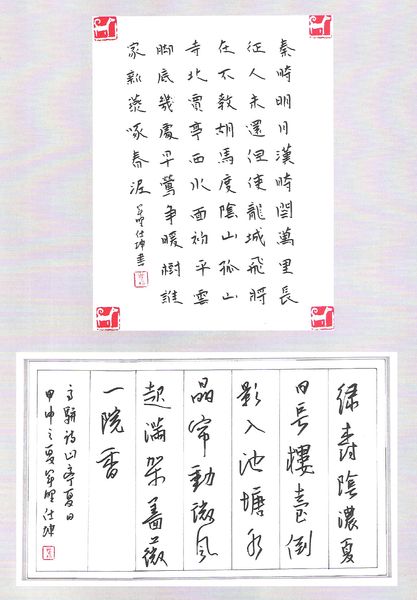 秦時明月漢時関萬里長
征人未還但使龍城飛將
在不教胡馬度陰山孤山
寺北賈亭西水面初平雲
脚底幾處早鶯争暖樹誰
家新燕啄春泥 仕坤書
緑樹陰濃夏
日長樓臺倒
影入池塘水
晶帘動微風
起滿架薔薇
一院香
高駢詩山亭夏日
甲申之夏軍 仕坤